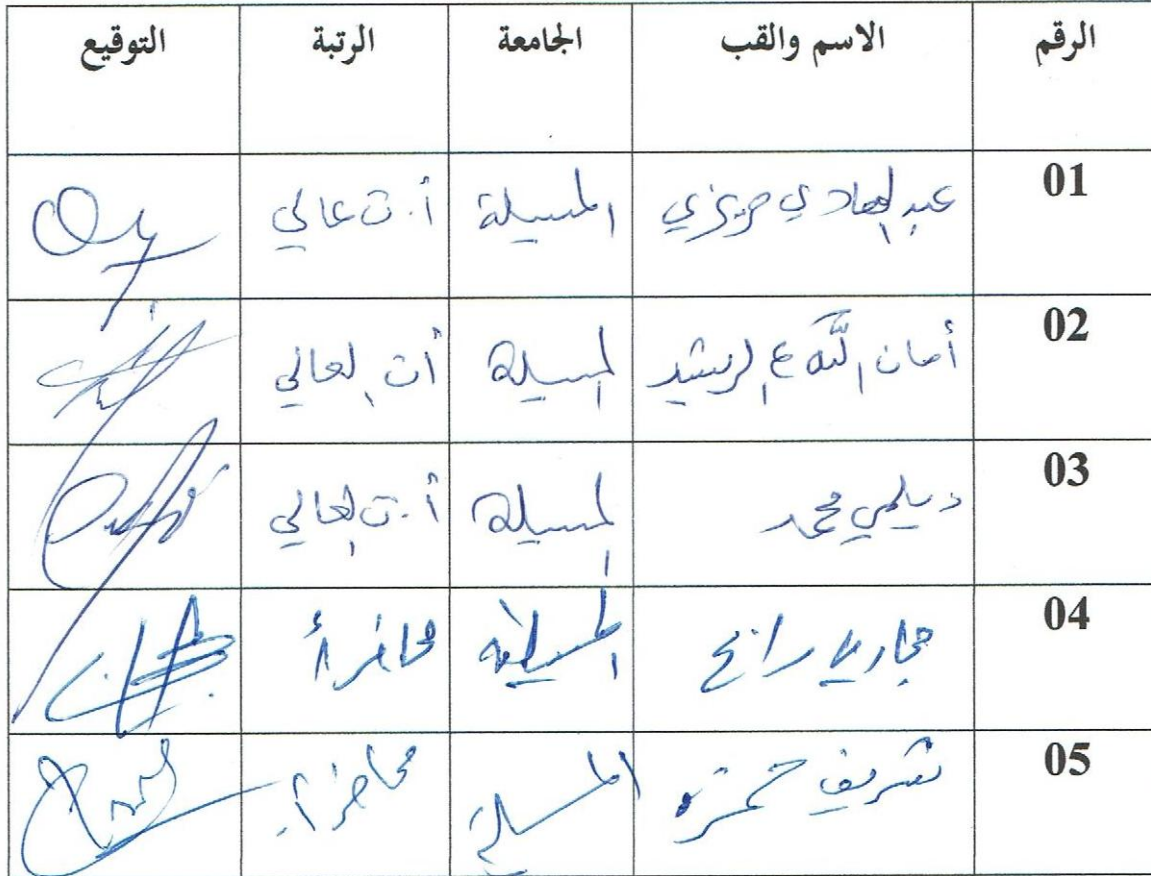 الرقم الاسم والقب الجامعة الرتبة التوقيع
01 عبد الهادي المسيلة أ.ت عالي
02 أمان الله ع الرشيد المسيلة أ ت العالي
03 ديلمي محمد المسيلة أ.ت العالي
04 رابح المسيلة محاضر أ
05 شريف حمزة المسيلة محاضر أ.